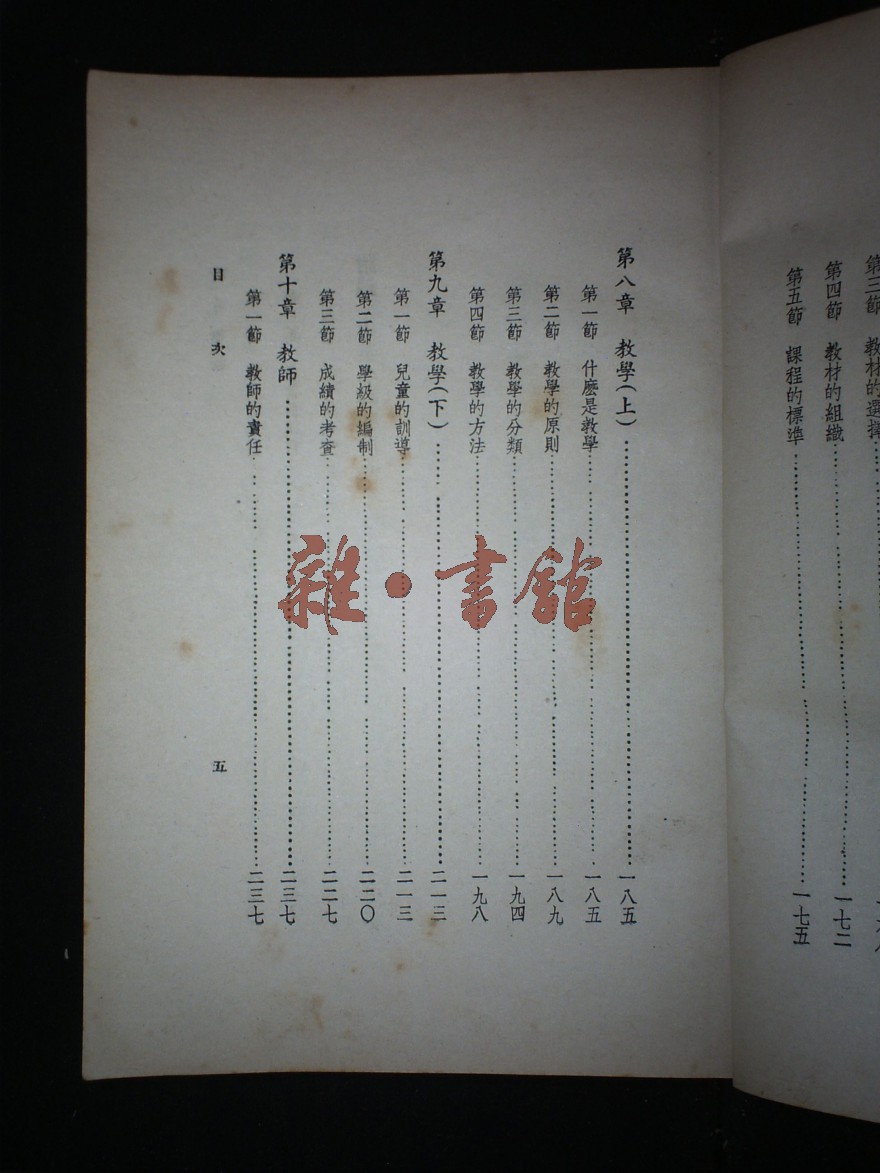 第三節　教材的選擇
第四節　教材的組織……一七二
第五節　課程的標準……一七五
第八章　教學(上)……一八五
第一節　什麽是教學……一八五
第二節　教學的原則……一八九
第三節　教學的分類……一九四
第四節　教學的方法……一九八
第九章　教學(下)……二一三
第一節　兒童的訓導……二一三
第二節　學級的編制……二二〇
第三節　成績的考查……二二七
第十章　教師……二三七
第一節　教師的責任……二三七
目次
五
雜·書館